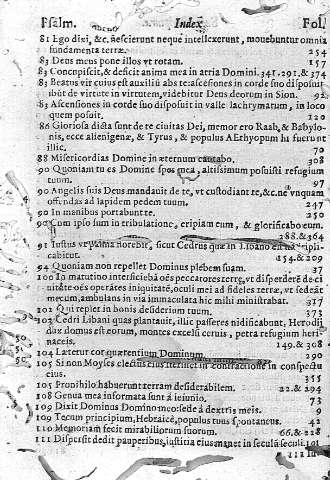 Psalm. Index. Fol.
81 Ego dixi, &c. nescierunt neque intellexerunt, movebuntur omnia
fundamenta terræ. 254
83 Deus meus pone illos vt rotam. 157
83 Concupiscit, & deficit anima mea in atria Domini. 341. 291. & 374
83 Beatus vir cuius est auxiliū abs te: ascēsiones in corde suo disposuit
ibūt de virtute in virtutem, videbitur Deus deorum in Sion. 92
83 Ascensiones in corde suo disposuit in valle lachrymatum, in loco
quem posuit. 120
86 Gloriosa dicta sunt de te civitas Dei, memor ero Raab, & Babylo-
nis, ecce alienigenæ, & Tyrus, & populus AEthyopum hi fuerunt
illic. 70
88 Misericordias Domine in æternum cantabo. 308
90 Quoniam tu es Domine spes mea, altissimum posuisti refugium
tuum. 97
90 Angelis suis Deus mandauit de te, vt custodiant te, &c. ne vnquam
offendas ad lapidem pedem tuum. 247
90 In manibus portabunt te. 250
90 Cum ipso sum in tribulatione, eripiam eum, & glorificabo eum.
288. & 364
91 Iustus vt palma florebit, sicut Cedrus quæ in Libano
cabitur. 154. & 209
94 Quoniam non repellet Dominus plebem suam. 37
100 In matutino interficiebā oēs peccatores terræ, vt disperderē de ci-
vitate oēs operātes iniquitatē, oculi mei ad fideles terræ, vt sedeāt
mecum, ambulans in via immaculata hic mihi ministrabat. 317
102 Qui replet in bonis desiderium tuum. 373
103 Cedri Libani quas plantauit, illic passeres nidificabunt, Herodij
dux domus est eorum, montes excelsi ceruis, petra refugium heri-
naceis. 149. & 308
104 Lætetur cor quærentium Dominum. 290
105 Si non Moyses electus eius stetisset in confractione in conspectu
eius. 355
105 Pronihilo habuerunt terram desiderabilem. 22. & 294
108 Genua mea informata sunt à ieiunio. 73
109 Dixit Dominus Domino meo: sede à dextris meis. 9
109 Tecum principium, Hebraicè, populus tuus spontaneus. 42
110 Memoriam fecit mirabilium suorum. 266
111 Dispersit dedit pauperibus, iustitia eius manet in seculū seculi. 101